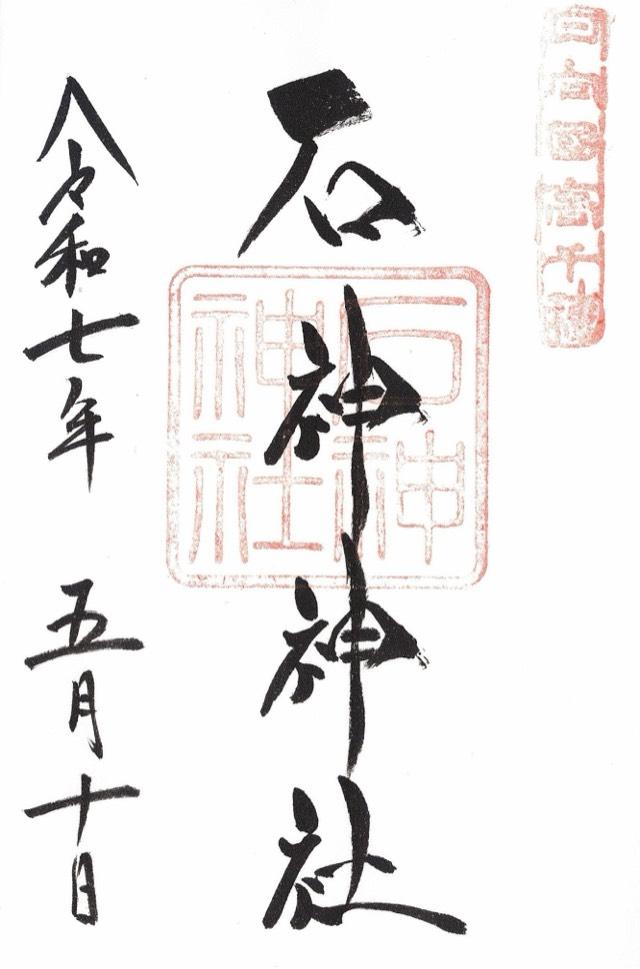 日向國高千穂
石神神社
石神
神社
令和七年 五月十日